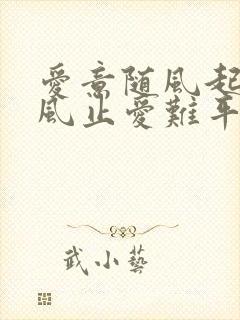 愛意随風起
風止愛難平
武小藝